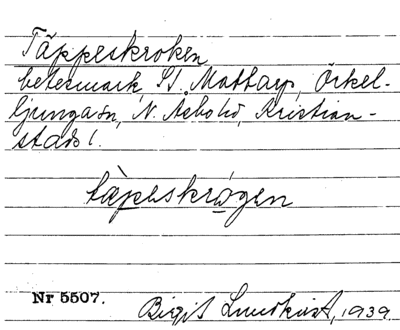 Täppeskroken
betesmark, St. Mattarp, Örkel-
ljunga sn, N. Åsbo hd, Kristian-
stads l.
täpeskrogen
Nr 5507.
Birgit Lundkvist, 1939.